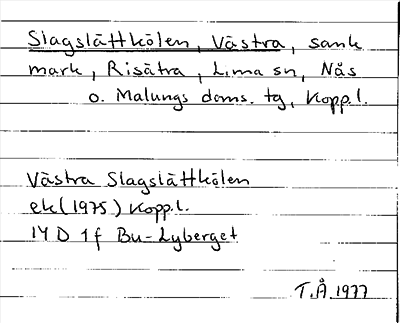 Slagslåttkölen, Västra, sank
mark, Risätra, Lima sn, Nås
o. Malungs doms. tg, Kopp.l.
Västra Slagslåttkölen
ek (1975) Kopp.l.
14 D 1f Bu-Lyberget
T.Å. 1977